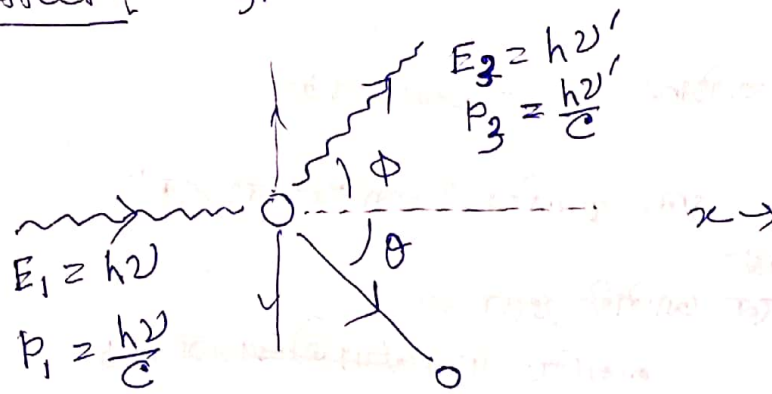 E₃ = hν'
P₃ = hν'/C
ϕ
x →
θ
E₁ = hν
P₁ = hν/C